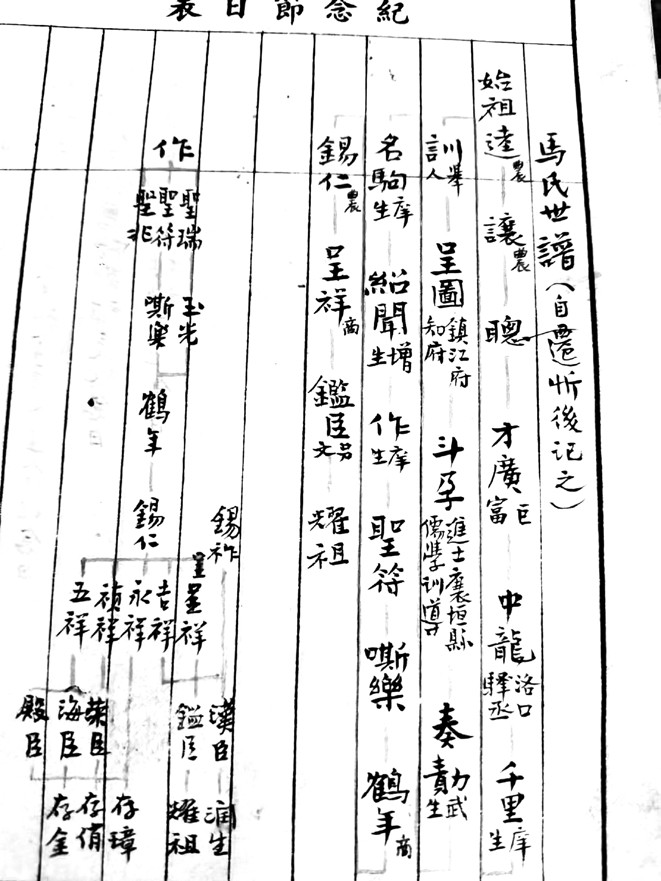 紀念節日表
馬氏世譜（自遷忻後记之）
始祖達農 讓農 聰 才廣巨富 中龍洛口驛丞 千里庠生
訓舉人 呈圖鎮江府知府 斗孚進士襄垣縣儒學训導 奏勣武生
名駒庠生 紹聞增生 作庠生 聖符 嘶樂 鶴年商
錫仁農 呈祥商 鑑臣 耀祖
作
聖瑞 聖符 聖兆
玉光 嘶樂
鶴年
錫祚 錫仁
呈祥 吉祥 永祥 禎祥 五祥
漢臣 鑑臣 榮臣 海臣 殿臣
润生 耀祖 存璋 存俏 存金